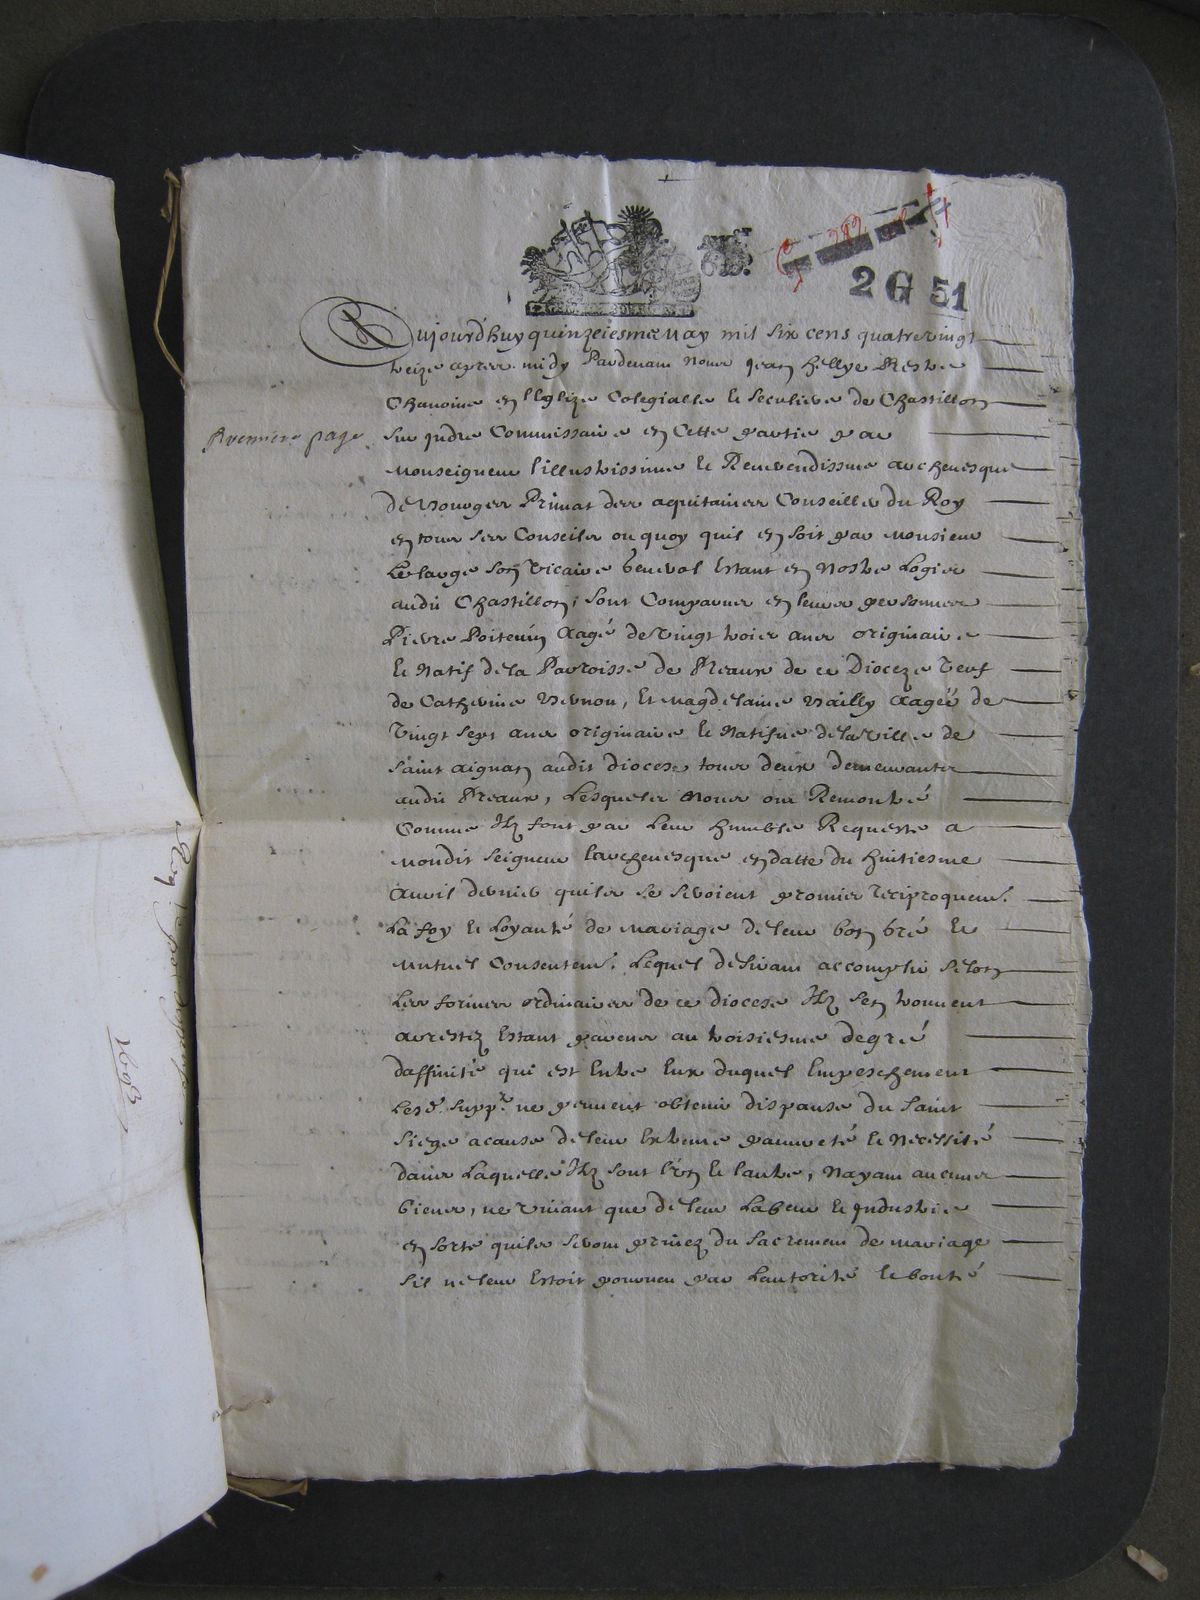 2 G 51
Aujourd'huy quinzeiesme May mil six cens quatre vingt
treize apres midy Pardevant Nous Jean Hellye Prestre
Chanoine en l'Eglize Colegialle et Seculiere de Chastillon
Premiere page
sur Indre Commissaire en Cette partie par
Monseigneur l'illustrissime et Reverendissme archevesque
de Bourges Primat des aquitaines Conseiller du Roy
en tous ses Conseils ou quoy quil en soit par Monsieur
son Vicaire estant en Nostre Logis
audit Chastillon, sont Comparus en leurs personnes
Pierre Poitevin aagé de vingt trois ans originaire
et Natif de la Parroisse de Preaux de ce Dioceze veuf
de Catherine Vernon, et Magdelaine Bailly aagée de
vingt sept ans originaire et Natifve de la ville de
saint aignan audit diocese tous deux demeurants
audit Preaux, Lesquels Nous ont Remontré
Comme Ilz font par Leur humble Requeste a
Mondit seigneur l'archevesque en datte du huitiesme
Avril dernier quils se seroient promis reciproquemt.
La foy et Loyauté de Mariage de leur bon gré et
Mutuel Consentemt. Lequel desirant accomplir selon
Les formes ordinaires de ce diocese Ilz s'en trouvent
arrestez Estant parens au troisiesme degré
daffinité qui est Entre Eux duquel Empeschement
Lesd. suppts ne peuvent obtenir dispanse du saint
siege a cause de leur Extreme pauvreté et Necessité
dans Laquelle Ilz sont l'un et lautre, Nayant aucuns
biens, ne vivant que de leur Labeur et Industrie
en sorte quils seront privez du sacrement de Mariage
sil ne leur Estoit pourveu par Lautorité et bonté
1693